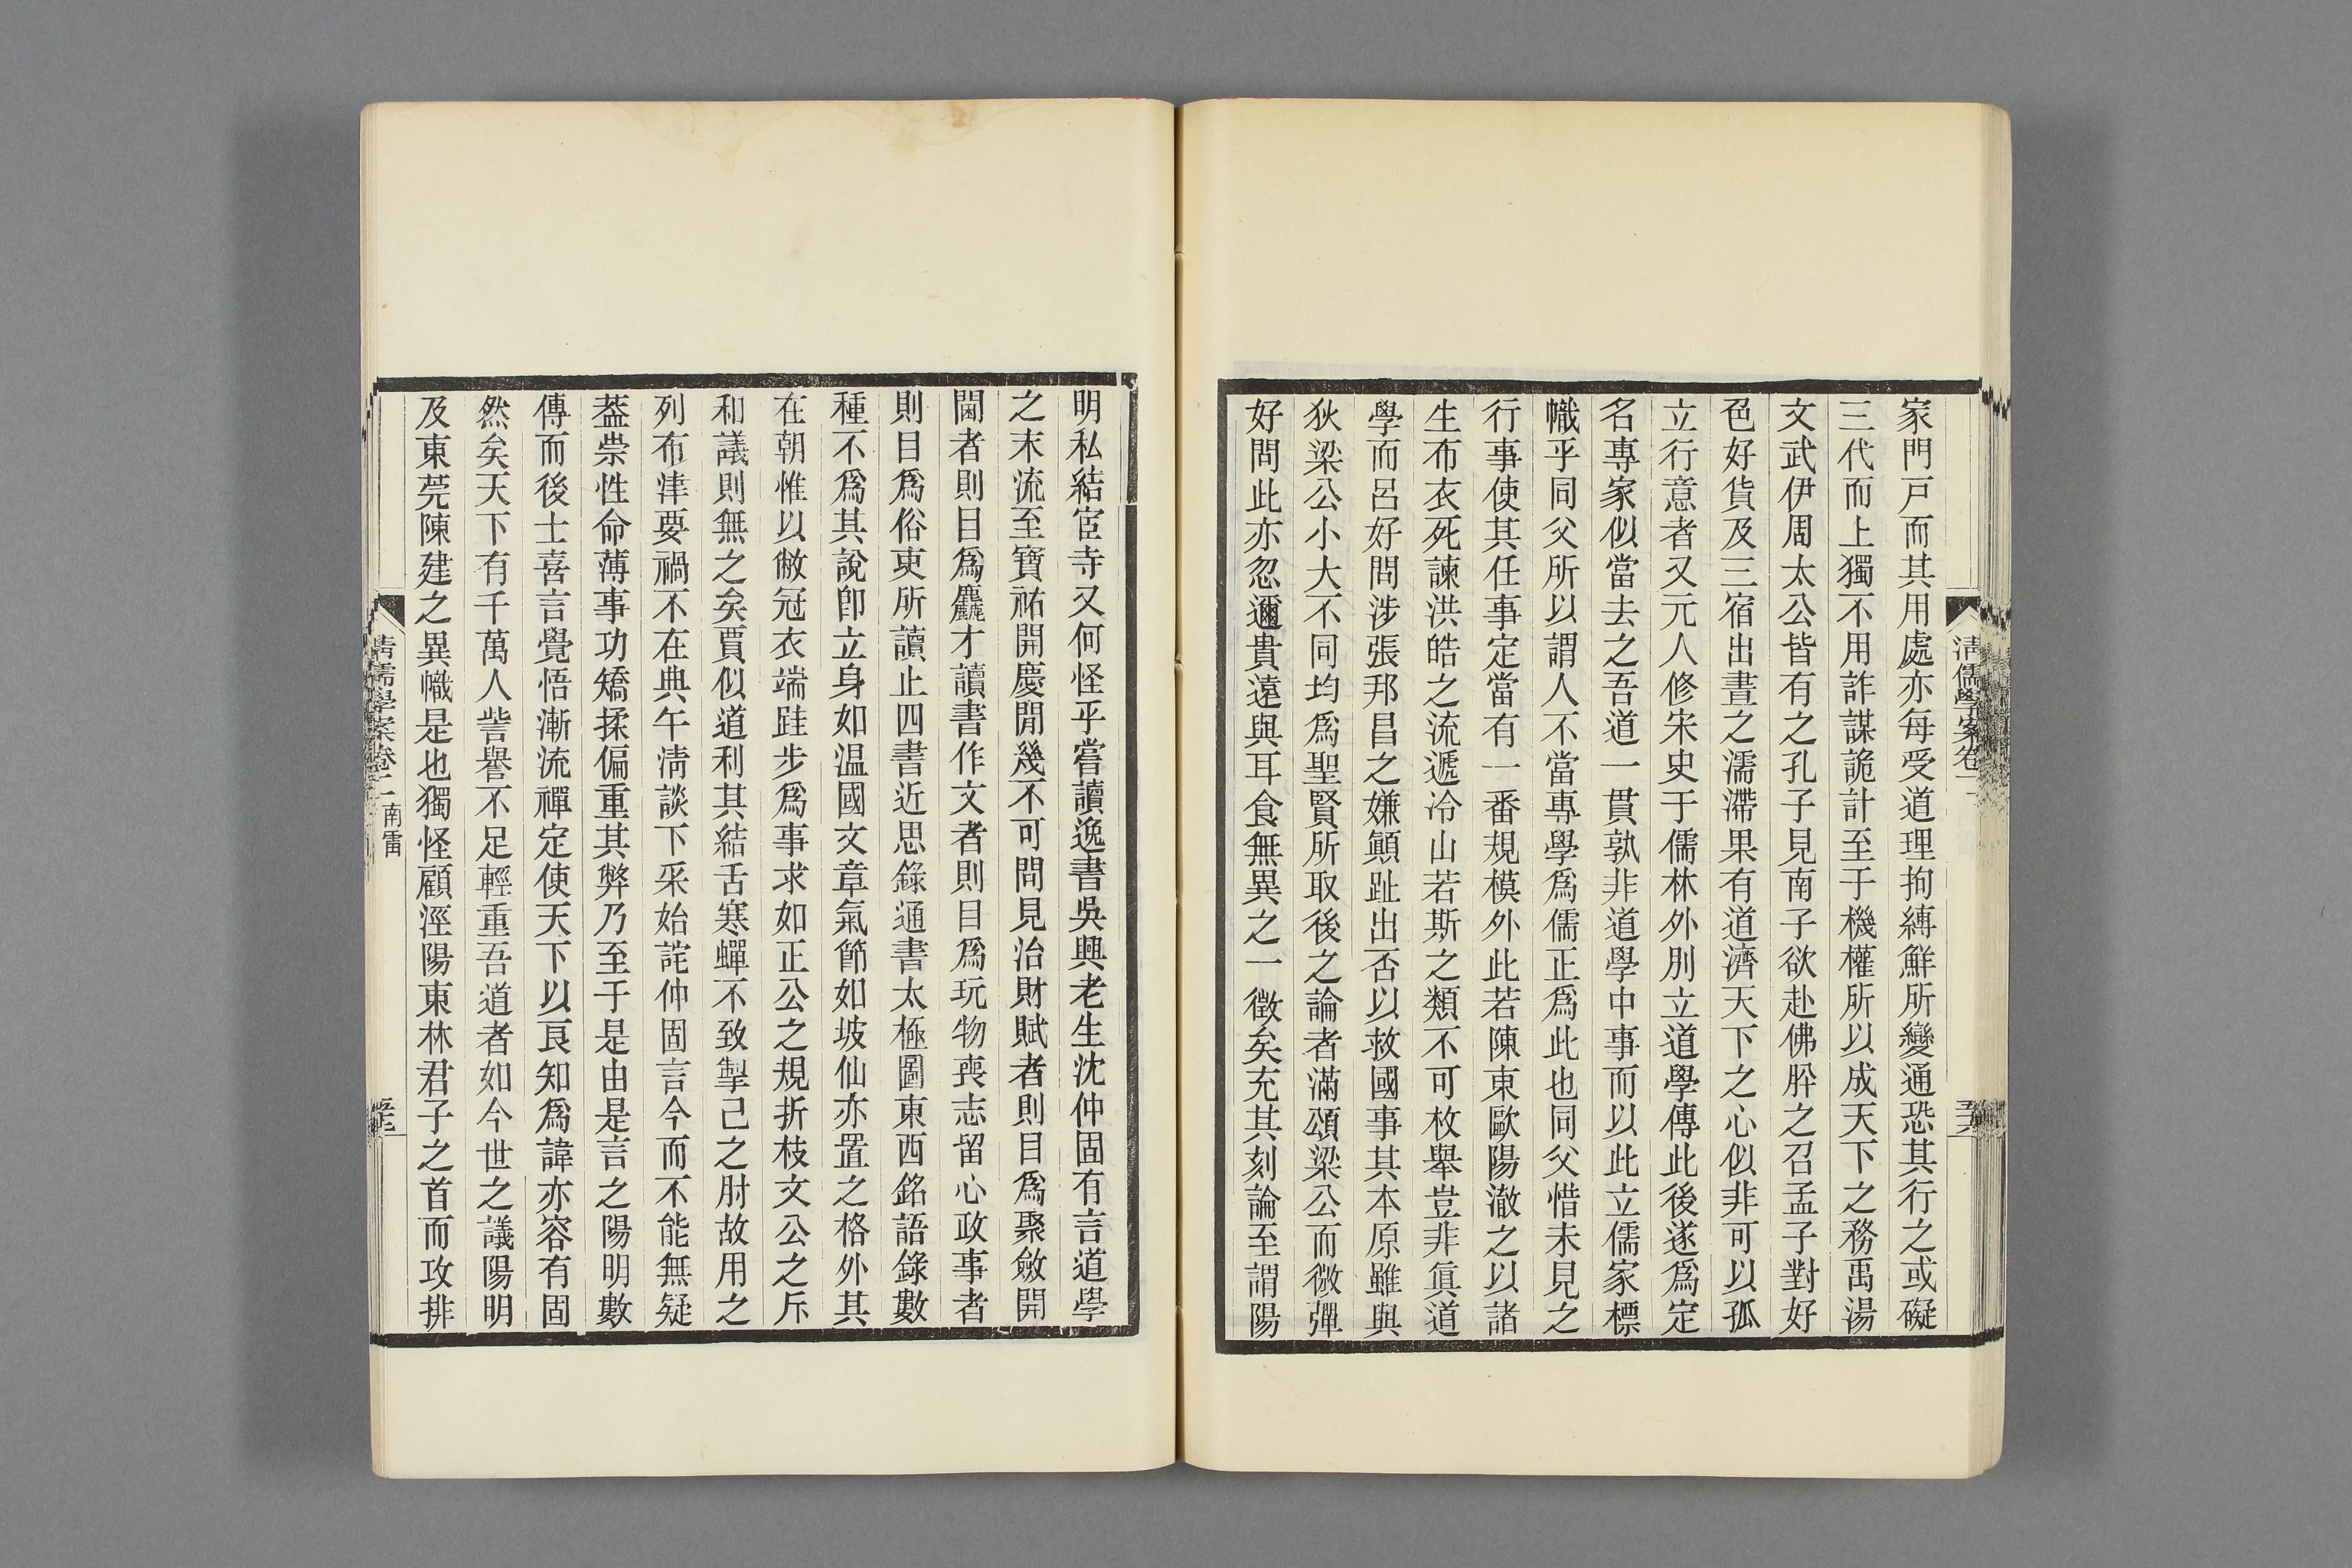 清儒學案卷二
家門戸而其用處亦每受道理拘縛鮮所變通恐其行之或礙
三代而上獨不用詐謀詭計至于機權所以成天下之務禹湯
文武伊周太公皆有之孔子見南子欲赴佛肸之召孟子對好
色好貨及三宿出晝之濡滯果有道濟天下之心似非可以孤
立行意者又元人修宋史于儒林外別立道學傳此後遂爲定
名專家似當去之吾道一貫孰非道學中事而以此立儒家標
幟乎同父所以謂人不當專學爲儒正爲此也同父惜未見之
行事使其任事定當有一番規模外此若陳東歐陽澈之以諸
生布衣死諫洪皓之流遞冷山若斯之類不可枚舉豈非眞道
學而呂好問涉張邦昌之嫌顚趾出否以救國事其本原雖與
狄梁公小大不同均爲聖賢所取後之論者滿頌梁公而微彈
好問此亦忽邇貴遠與耳食無異之一徵矣充其刻論至謂陽
明私結宦寺又何怪乎嘗讀逸書吳興老生沈仲固有言道學
之末流至寶祐開慶閒幾不可問見治財賦者則目爲聚斂開
閫者則目爲麤才讀書作文者則目爲玩物喪志留心政事者
則目爲俗吏所讀止四書近思錄通書太極圖東西銘語錄數
種不爲其說卽立身如温國文章氣節如坡仙亦置之格外其
在朝惟以敝冠衣端跬步爲事求如正公之規折枝文公之斥
和議則無之矣賈似道利其結舌寒蟬不致掣己之肘故用之
列布津要禍不在典午淸談下采始詫仲固言今而不能無疑
葢崇性命薄事功矯揉偏重其弊乃至于是由是言之陽明數
傳而後士喜言覺悟漸流禪定使天下以良知爲諱亦容有固
然矣天下有千萬人訾譽不足輕重吾道者如今世之議陽明
及東莞陳建之異幟是也獨怪顧涇陽東林君子之首而攻排
清儒學案卷二 南雷